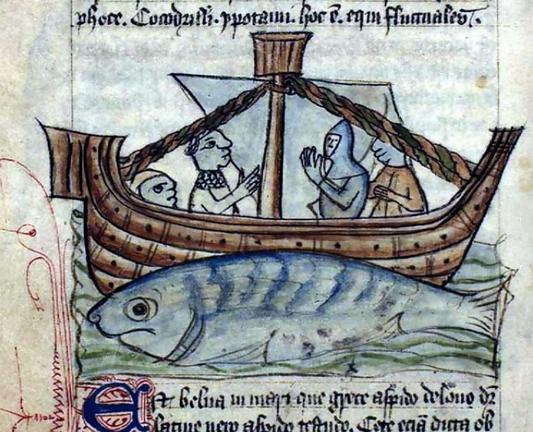 phoce. Cocodrilli. ypotami. hoc ē. equi fluctuales.
Est belua in mari que grece aspido delone dr̄
latine uero aspido testudo. Cete eciā dicta ob